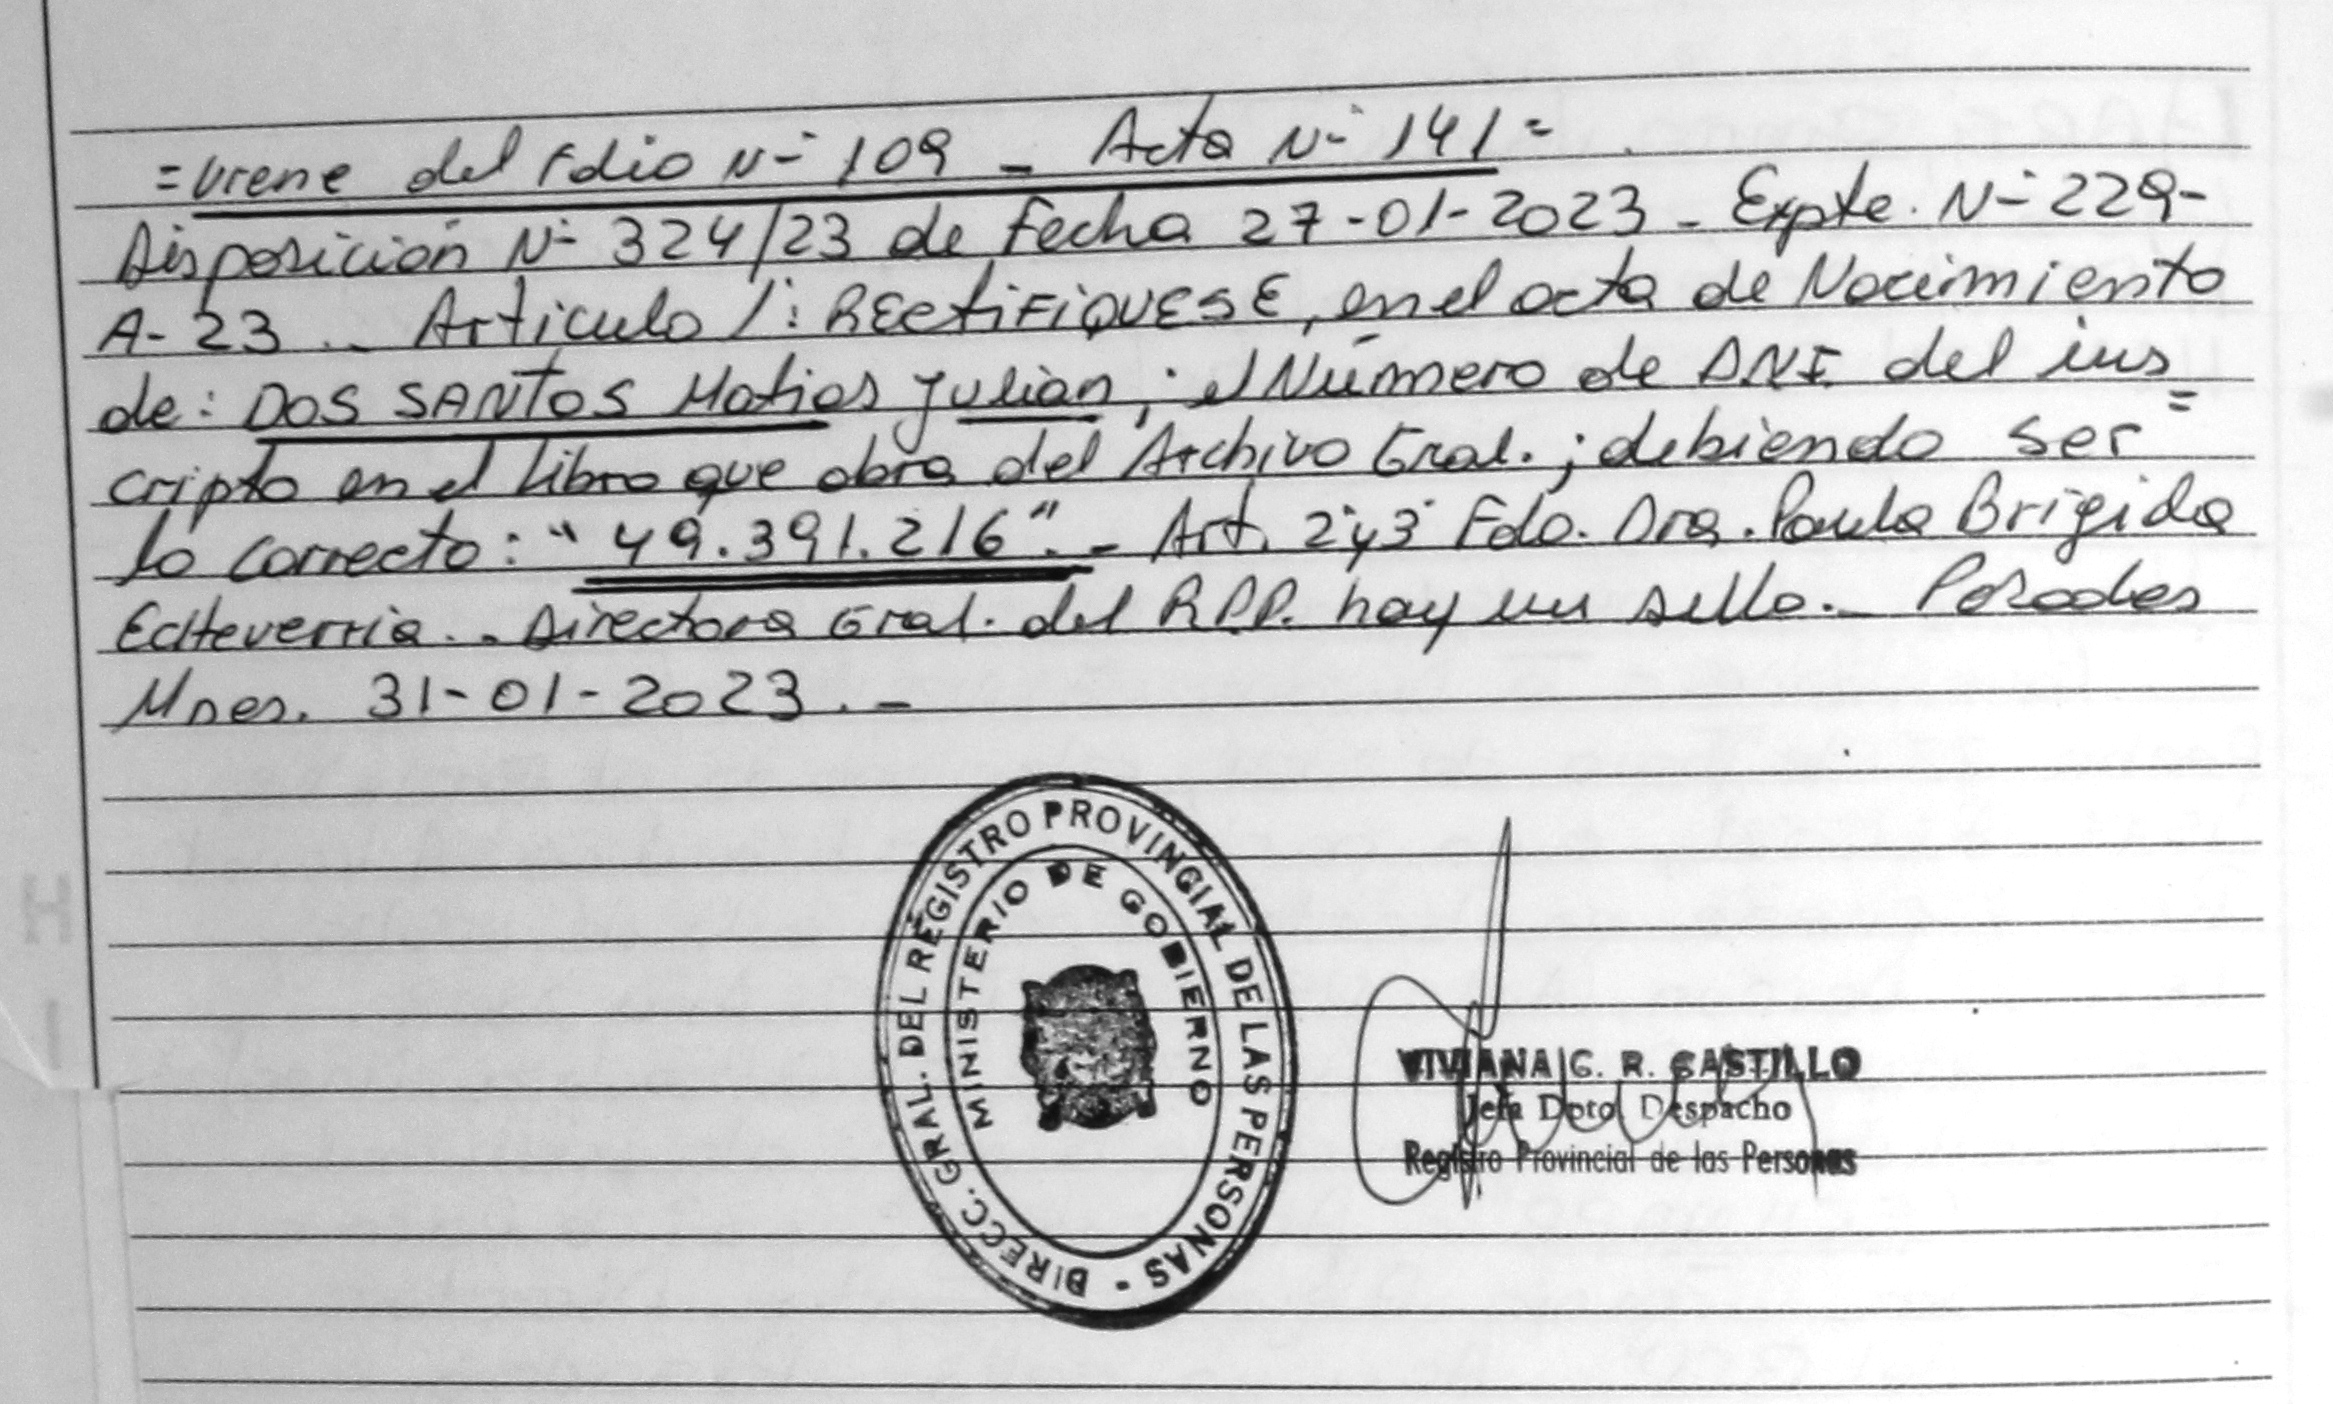 = Viene del Folio N° 109 - Acta N° 141 =
Disposición N° 324/23 de Fecha 27-01-2023 - Expte. N° 229-
A-23 .. Articulo 1°: RECtiFiQUESE, en el acta de Nacimiento
de: DOS SANTOS Matias Julian ; el Número de DNI del ins
cripto en el Libro que obra del Archivo Gral. ; debiendo ser =
lo correcto : " 49.391.216". - Art. 2°y3° Fdo. Dra. Paula Brigida
Echeverria. . Directora Gral. del R.P.P. hay un sello. - Posadas
Mnes. 31-01-2023 . -
DIRECC. GRAL. DEL REGISTRO PROVINCIAL DE LAS PERSONAS -
MINISTERIO DE GOBIERNO
VIVIANA C. R. CASTILLO
Jefa Dpto. Despacho
Registro Provincial de las Personas